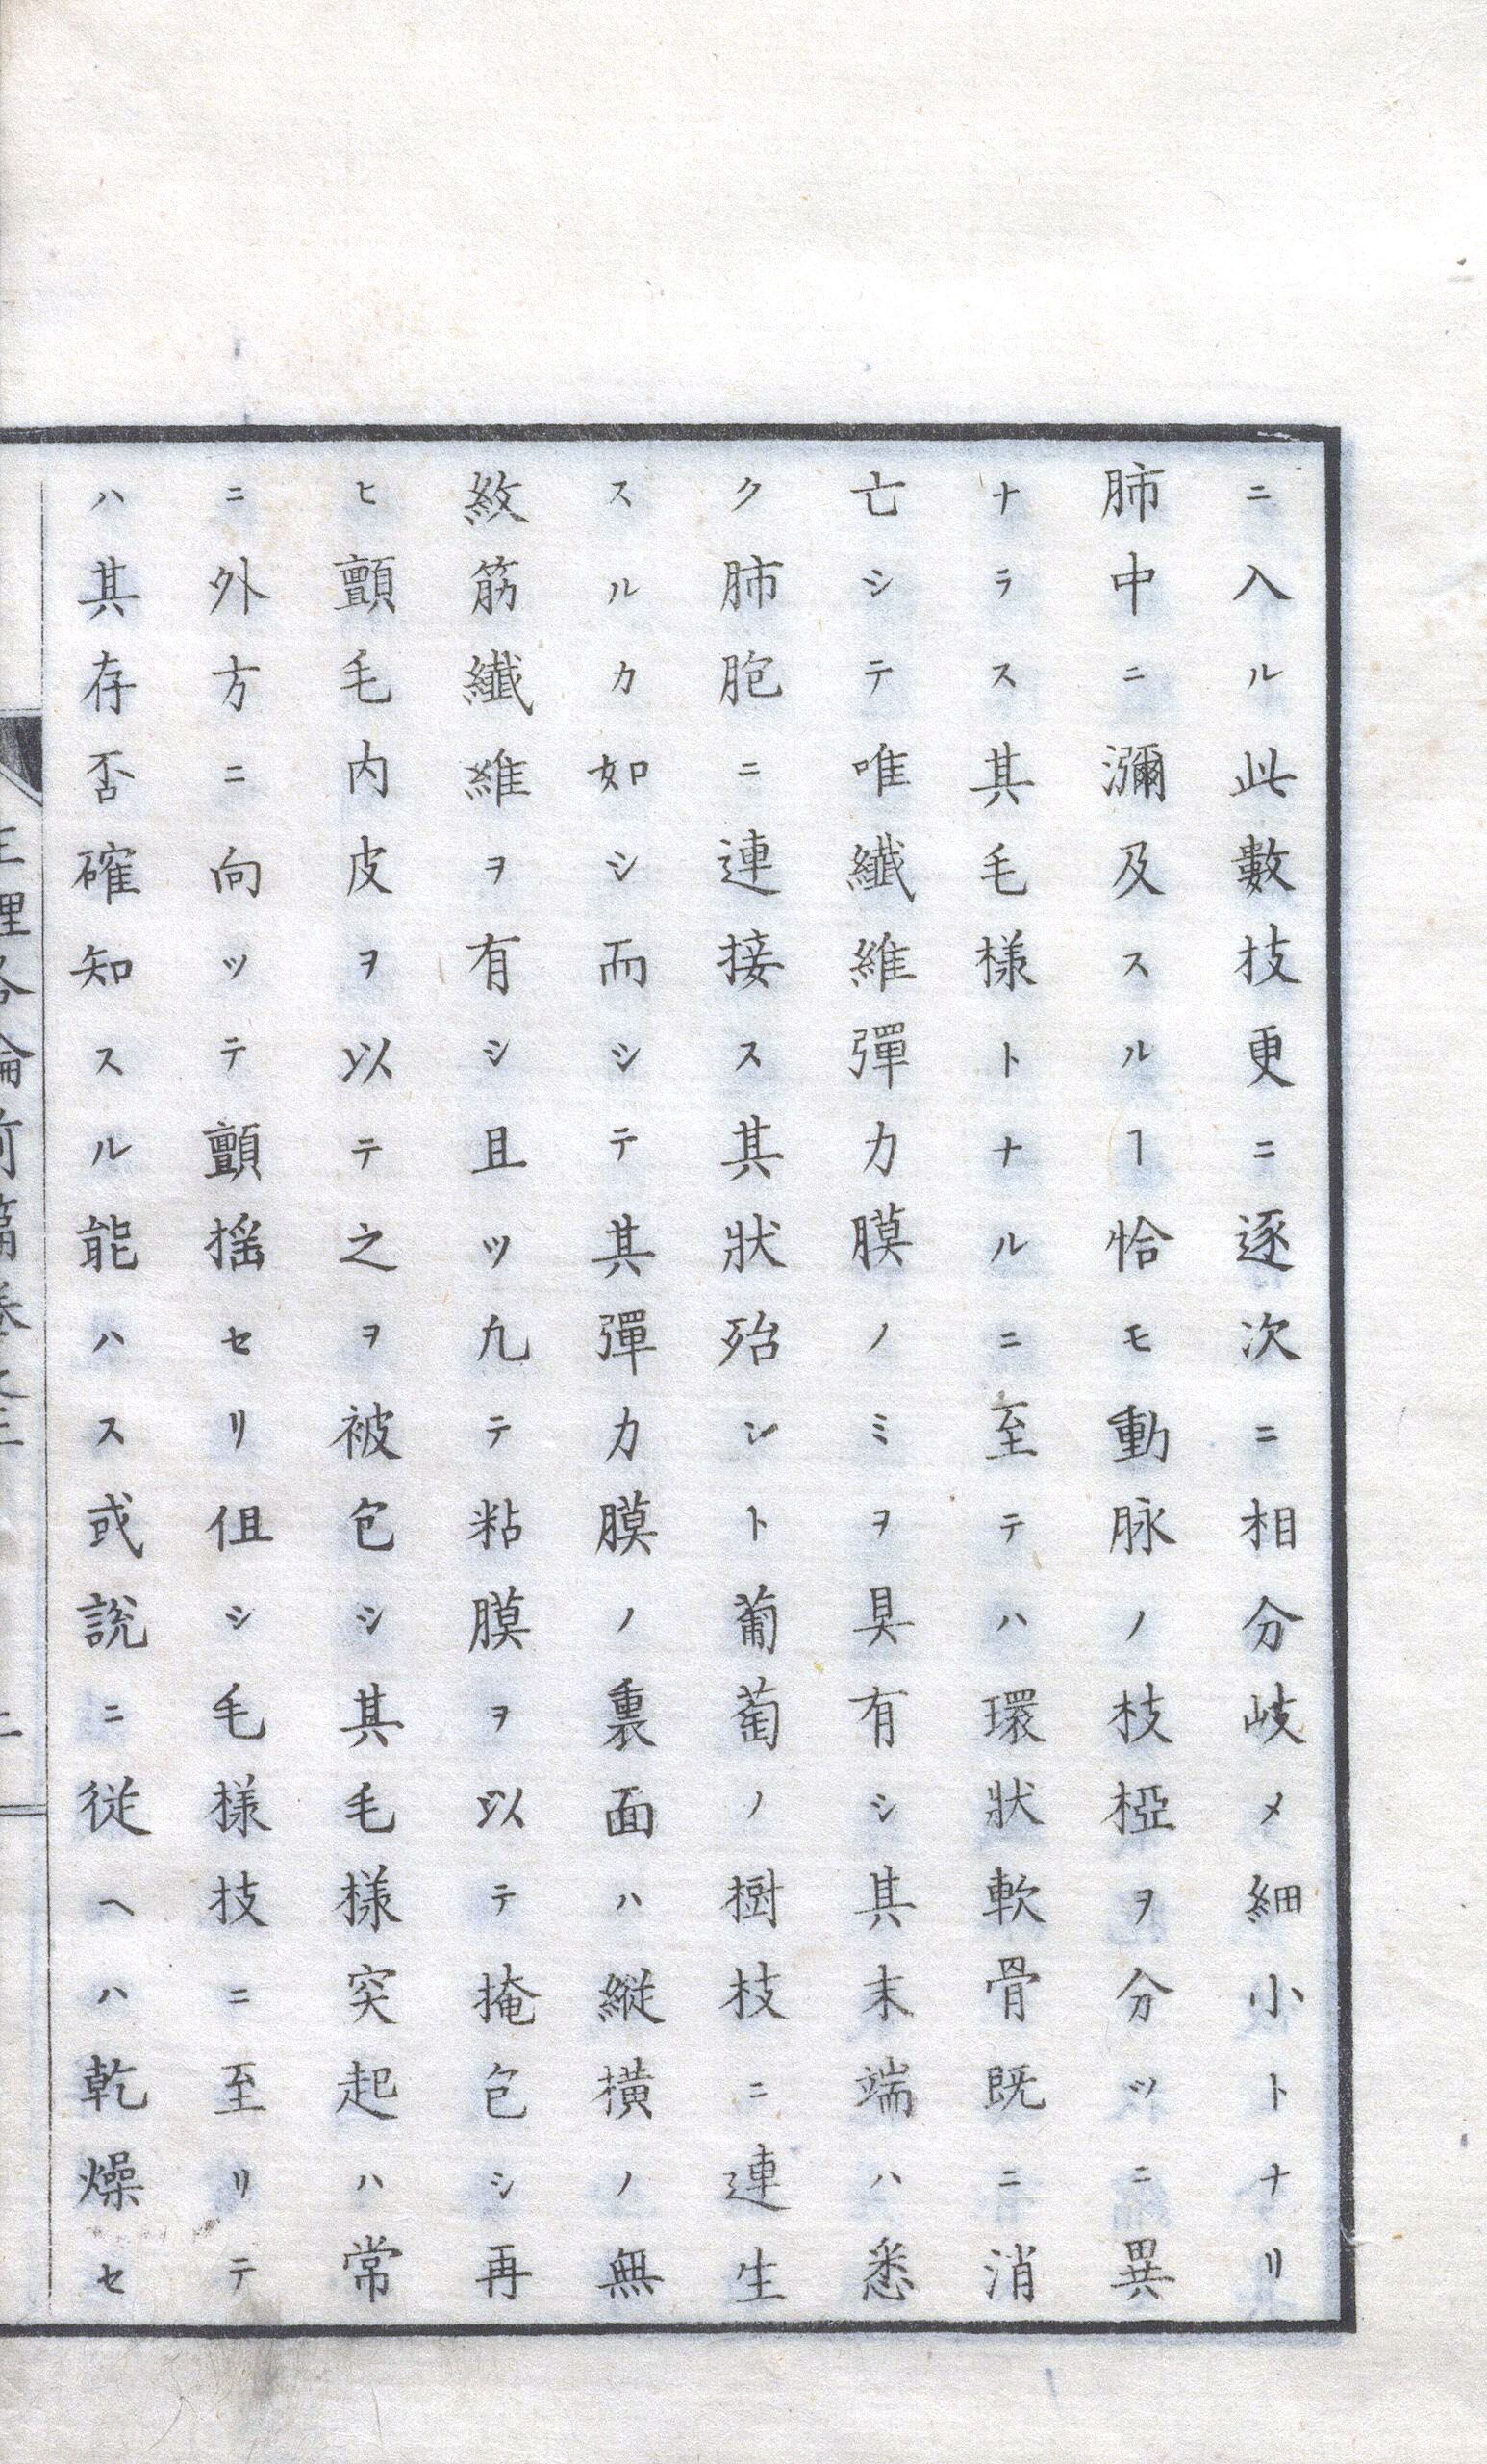 ニ入ル此數技更ニ逐次ニ相分岐メ細小トナリ
肺中ニ瀰及スルヿ恰モ動脉ノ枝椏ヲ分ツニ異
ナラス其毛樣トナルニ至テハ環狀軟骨既ニ消
亡シテ唯纎維彈力膜ノミヲ具有シ其末端ハ悉
ク肺胞ニ連接ス其狀殆ント葡萄ノ樹枝ニ連生
スルカ如シ而シテ其彈力膜ノ裏面ハ縱橫ノ無
紋筋纎維ヲ有シ且ツ九テ粘膜ヲ以テ掩包シ再
ヒ顫毛内皮ヲ以テ之ヲ被包シ其毛樣突起ハ常
ニ外方ニ向ッテ顫搖セリ伹シ毛樣技ニ至リテ
ハ其存否確知スル能ハス或説ニ従ヘハ乾燥セ